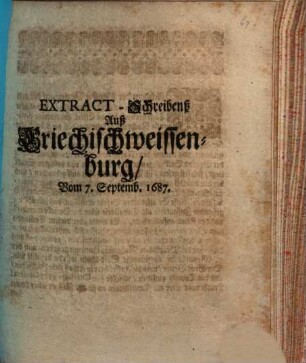 EXTRACT-Schreibenß
Auß
Griechischweissen-
burg/
Vom 7. Septemb. 1687.